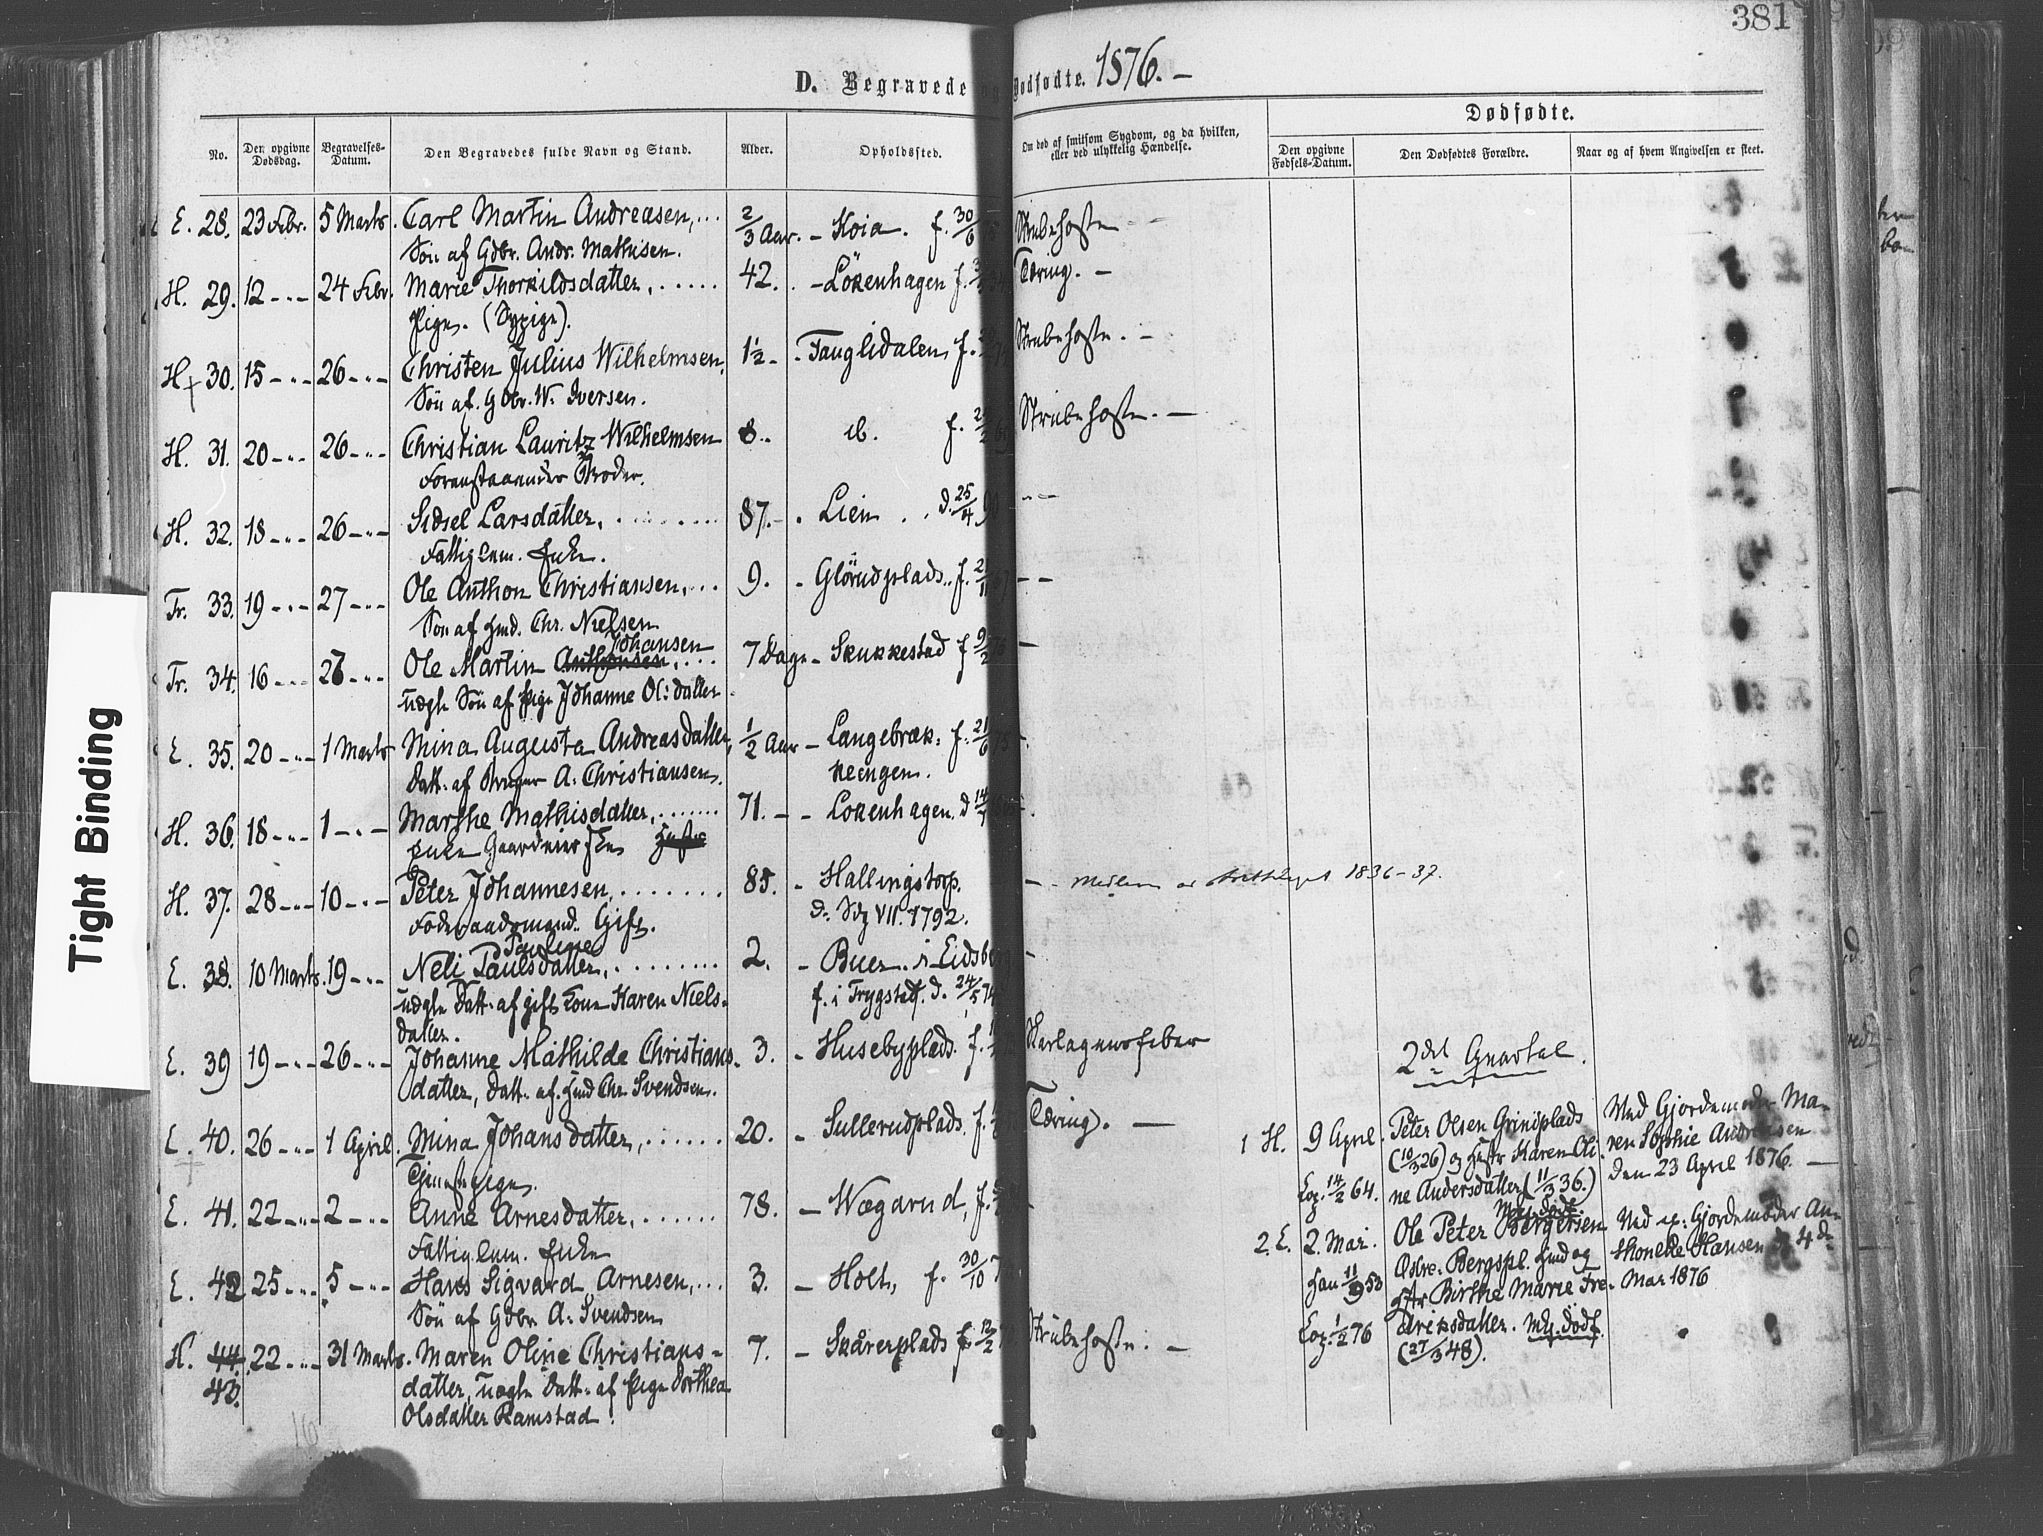 381
D. Begravede og Dødfødte. 1876. –
No.
Den opgivne Dødsdag.
Begravelses-Datum.
Den Begravedes fulde Navn og Stand.
Alder.
Opholdssted.
Om død af smitsom Sygdom, og da hvilken, eller ved ulykkelig Hændelse.
Dødfødte.
Den opgivne Fødsels-Datum.
Den Dødfødtes Forældre.
Naar og af hvem Angivelsen er skeet.
E. 28. 23 Febr. 5 Marts. Carl Martin Andreasen, ... 2/3 Aar. – Koia. f. 30/6 75 Strubehoste
Søn af Gdbr. Andr. Mathisen.
H. 29. 12 – " – 24 Febr. Marie Thorkildsdatter, ..... 42. – Løkenhagen f. Tæring. –
Pige. (Sypige).
H. 30. 15 – " – 26 – " – Christen Julius Wilhelmsen, 1½ – . Fauglidalen, f. Strubehoste. –
Søn af. Gdbr. W. Iversen.
H. 31. 20 – " – 26 – " – Christian Lauritz Wilhelmsen 8. ib. f. Strubehoste. –
Foranstaaendes Broder.
H. 32. 18 – " – 26 – " – Sidsel Larsdatter, ........ 87. – . Lien . . d. 25/4 90 – –
Fattiglem. Enke.
Tr. 33. 19 – " – 27 – " – Ole Anthon Christiansen, ... 9. – Glörudplads. f. – –
Søn af Hmd. Chr. Nielsen
Johansen
Tr. 34. 16 – " – 27 – " – Ole Martin Anthonsen, ... 7 Dage – Skukkestad f. 9/2 76 –
uægte Søn af Pige Johanne Ol: datter
E. 35. 20 – " – 1 Marts Mina Augusta Andreasdatter, 1/2 Aar – Langebræk: f. 21/6 75 –
Datt. af Bruger A: Christiansen. keengen.
H. 36. 18 – " – 1 – " – Marthe Mathisdatter, ....... 71. – – Lokenhagen. d 14/7
Enke
H. 37. 28 – " – 10 – " – Peter Johannesen, ....... 85. – Hallingstorp. – Medlem av Stortinget 1836–37.
Föderaadsmand. Gift. d. VII. 1792.
Pauline
E. 38. 10 Marts. 19 – " – Neli Paulsdatter, ....... 2. – Buer. i Eidsberg –
uægte Datt. af gift Kone Karen Niels- f. i Trygstad. d. 24/5 74
datter.
E. 39 19 – " – 26 – " – Johanne Mathilde Christians- 3. – Husebyplads. f. Skarlagensfeber
datter, Datt. af. Hmd Chr. Svendsen.
E. 40. 26 – " – 1 April. Mina Johansdatter, ...... 20. – Sullerudplads. f. Tæring. –
Tjenestepige.
E. 41. 22 – " – 2 – " – Anne Arnesdatter, ...... 78. – Wægarud, f. –
Fattiglem. Enke
E. 42 25 – " – 5 – " – Hans Sigvard Arnesen, ... 3. – Holt, f. 30/10 7
Søn af Gdbr A: Svendsen
H. 44. 22 – " – 31 Marts. Maren Oline Christians- 7. – Skårerplads f. 12/2 Strubehoste. –
43. datter, uægte Datt. af Pige Dorthea
Olsdatter Ramstad.
2det Qvartal.
1 H. 9 April. Peter Olsen Grindplads Ved Gjordemoder Ma-
(10/3 26) og Hustr Karen Oli- ren Sophie Andreasen
Cop. 14/2 64. ne Andersdatter (11/3 36.) den 23 April 1876. –
2. E. 2. Mai. Ole Peter Bergersen Ved ex: Gjordemoder An-
Østre: Bergspl. Hmd og Hansen d. 4 d
Han 11/9 53 Hstr Birthe Marie Fre- Mai 1876
Cop. 1/2 76 driksdatter. Mg. dødf.
(27/3 48).
Tight Binding